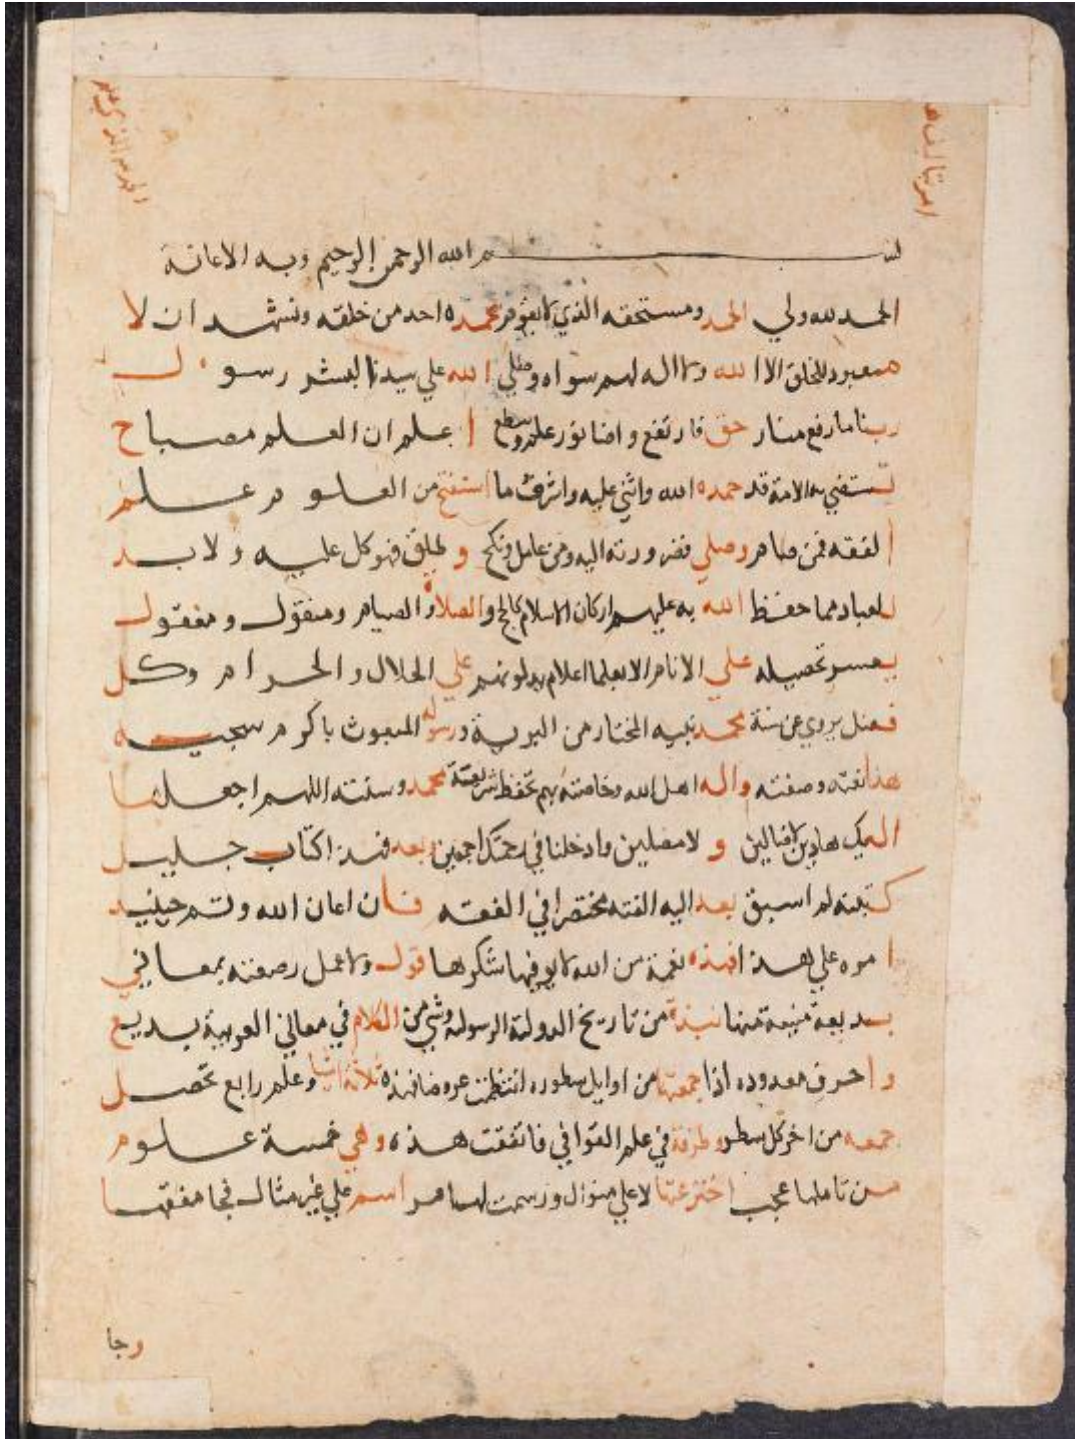 بسم الله الرحمن الرحيم وبه الاعانة
الحمد لله ولي الحمد ومستحقه الذي لا يقوم بحمده احد من خلقه ونشهد ان لا
معبود للخلق الا الله ولا اله لهم سواه وصلي الله علي سيدنا البشر رسول
ربنا ما رفع منار حق فارتفع واضا نور علم وسطع اعلم ان العلم مصباح
تستضي به الامة قد حمده الله واثني عليه واشرف ما استفتح من العلوم علم
الفقه فمن صام وصلي فضرورته اليه ومن عامل ونكح وطلق فهو كل عليه ولا بد
للعباد مما حفظ الله به عليهم اركان الاسلام كالحج والصلاة والصيام ومنقول ومعقول
يعسر تحصيله علي الانام الا بعلما اعلام يدلونهم علي الحلال والحرام وكل
فضل يروي عن سنة محمد نبيه المختار من البرية ورسوله المبعوث باكرم سجيه
هذا نعته وصفته واله اهل الله وخاصته بهم تحفظ شريعة محمد وسنته اللهم اجعلنا
اليك هادين لا ضالين ولا مضلين وادخلنا في رحمتك اجمعين وبعد فهذا كتاب جليل
كتبته لم اسبق بعد اليه الفته مختصرا في الفقه فان اعان الله وتم حينيد
امره علي هذا فهذه نعمة من الله لا يوفيها شكرها قول ولا عمل رصعته بمعاني
بديعة منيعة منها نبذة من تاريخ الدولة الرسولية وشي من الكلام في معاني العربية بديع
واحرف معدوده اذا جمعتها من اوايل سطوره انتظمت عروضا فهذه ثلاثة اشيا وعلم رابع تحصل
جمعه من اخر كل سطر وطرفة في علم القوافي فاتفقت هذه وهي خمسة علوم
من تاملها عجب اخترعتها لا علي منوال ورسمت لها مر اسم علي غير مثال فجا مفقها
وجا